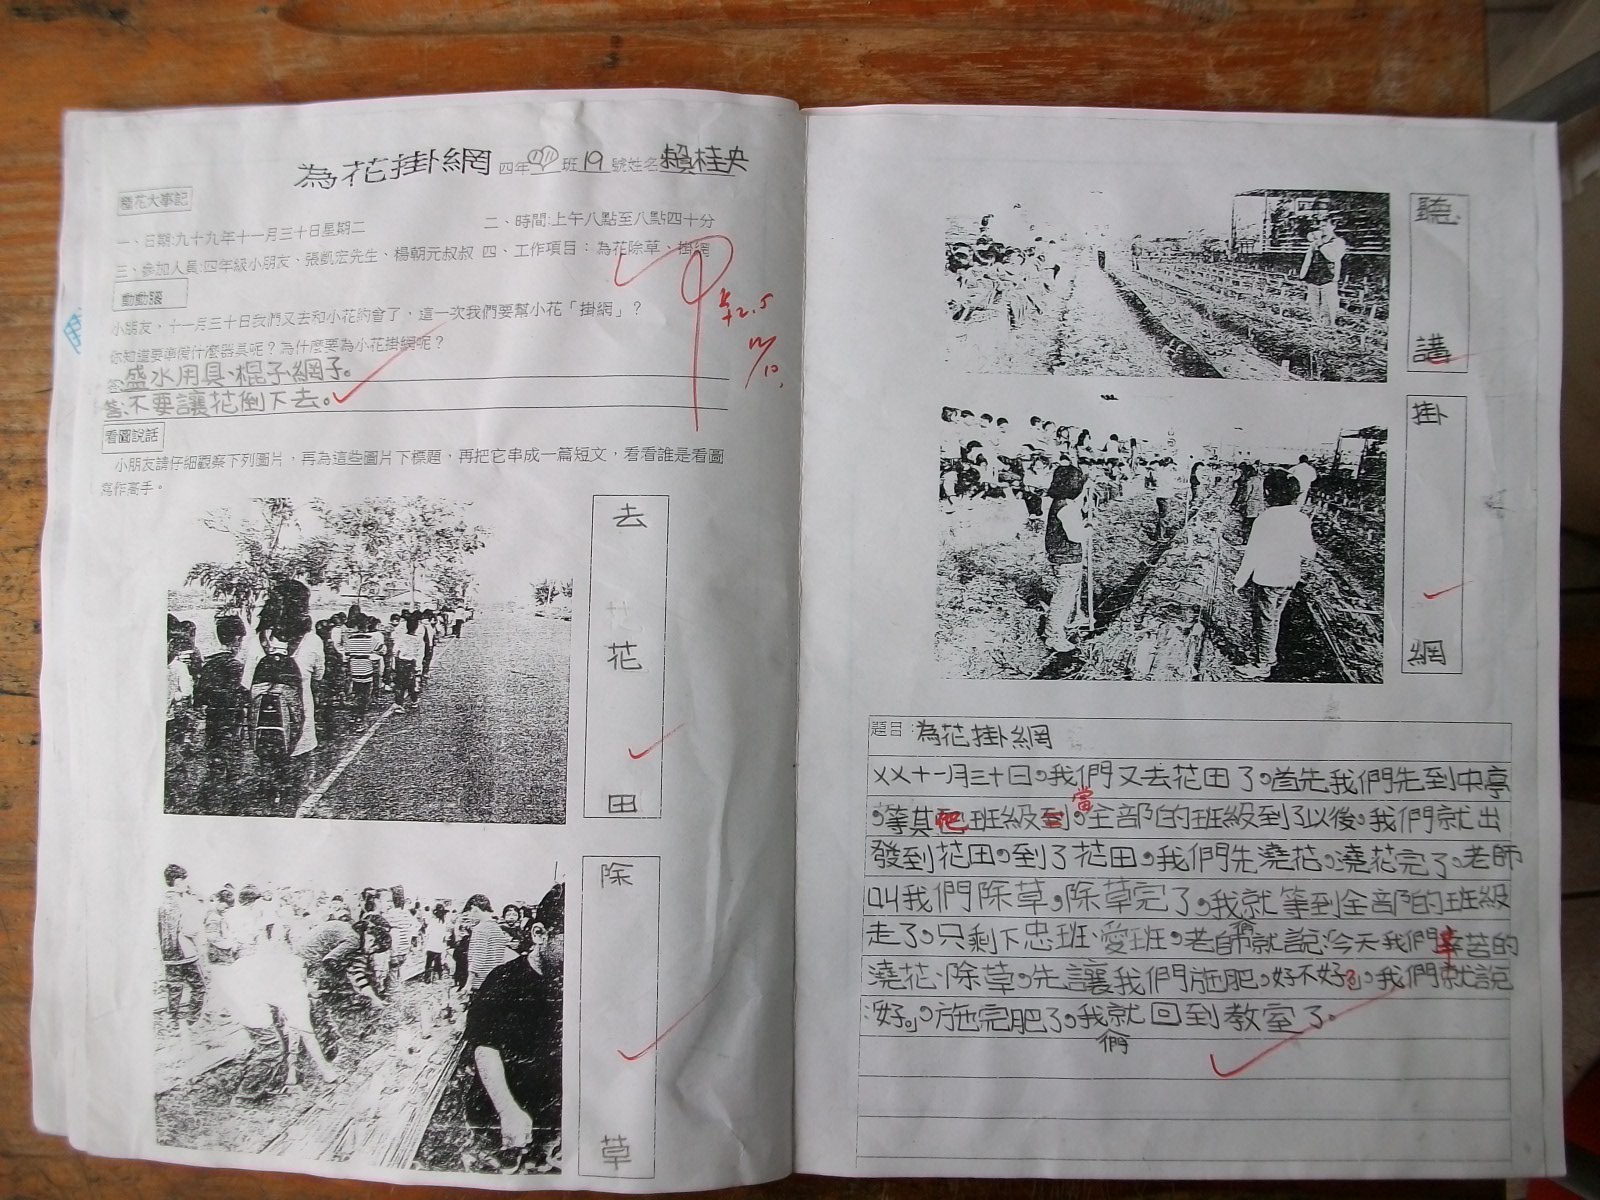 為花掛網 四年 班19號姓名賴桂央
種花大事記
一、日期:九十九年十一月三十日星期二 二、時間:上午八點至八點四十分
三、參加人員:四年級小朋友、張凱宏先生、楊朝元叔叔 四、工作項目：為花除草、掛網
動動腦
小朋友，十一月三十日我們又去和小花約會了，這一次我們要幫小花「掛網」？
你知道要準備什麼器具呢？為什麼要為小花掛網呢？
答:盛水用具、棍子、網子。
答:不要讓花倒下去。
12/10
看圖說話
小朋友請仔細觀察下列圖片，再為這些圖片下標題，再把它串成一篇短文，看看誰是看圖
寫作高手。
去花田
除草
聽講
掛網
題目：為花掛網
XX十一月三十日，我們又去花田了。首先我們先到中亭
，等其他班級到。當全部的班級到了以後，我們就出
發到花田。到了花田，我們先澆花，澆花完了，老師
叫我們除草，除草完了，我就等到全部的班級
走了，只剩下忠班、愛班，老師就說:「今天我們辛苦的
澆花、除草，先讓我們施肥，好不好？」我們就說
:「好。」施完肥了，我們就回到教室了。